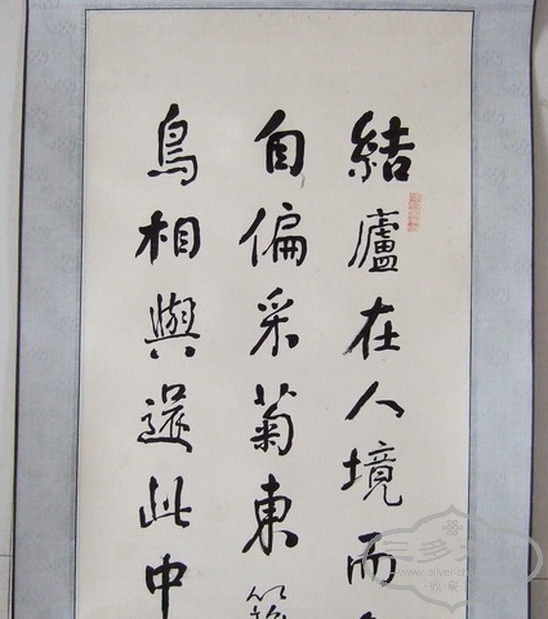 結廬在人境而
自偏采菊東籬
鳥相與還此中
三多
www.silver
收藏